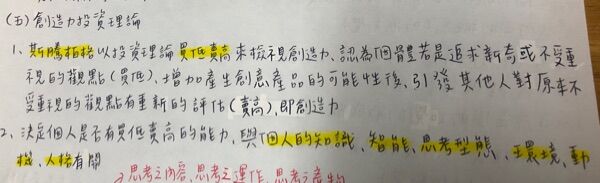 (五)創造力投資理論
1、斯騰柏格以投資理論買低賣高來檢視創造力、認為個體若是追求新奇或不受重
視的觀點(買低)、增加產生創意產品的可能性後、引發其他人對原本不
受重視的觀點有重新的評估(賣高)、即創造力
2、決定個人是否有買低賣高的能力、與個人的知識、智能、思考型態、環境、動
機、人格有關
思考之內容、思考之運作、思考之產物